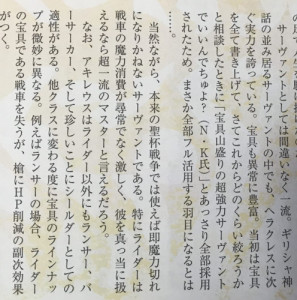 サーヴァントとしては間違いなく一流。ギリシャ神
話の並み居るサーヴァントの中でも、ヘラクレスに次
ぐ実力を誇っている。宝具も異常に豊富。当初は宝具
を全て書き上げて、さてこれからどのくらい絞ろうか
と相談したときに「宝具山盛りの超強力サーヴァント
でいいんでちゅよ？（N・K氏）とあっさり全部採用
されたため。まさか全部フル活用する羽目になるとは
…………。
当然ながら、本来の聖杯戦争では使えば即魔力切れ
になりかねないサーヴァントである。特にライダーは
戦車の魔力消費が尋常でなく激しく、彼を真っ当に扱
えるなら超一流のマスターと言えるだろう。
なお、アキレウスはライダー以外にもランサー、バ
ーサーカー、そして珍しいことにシールダーとしての
適性がある。他クラスに変わる度に宝具のラインナッ
プが微妙に異なる。例えばランサーの場合、ライダー
の宝具である戦車を失うが、槍にHP削減の副次効果
がつく。